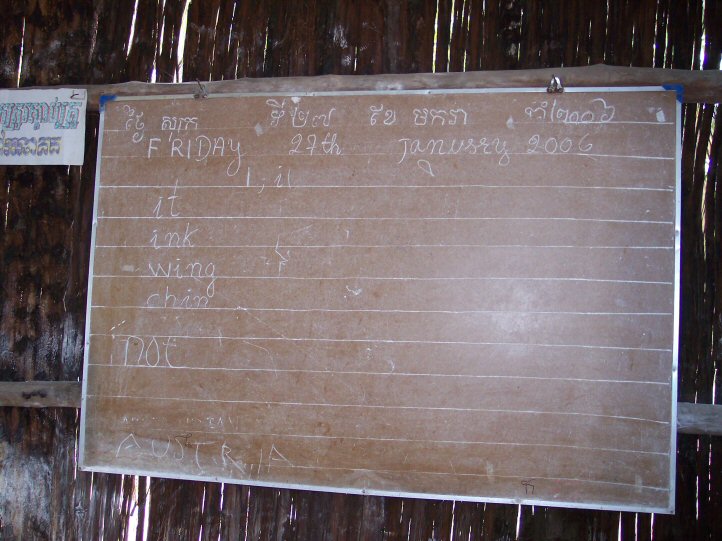 ថ្ងៃ សុក្រ ទី ២៧ ខែ មករា ឆ្នាំ ២០០៦
FRIDAY 27th January 2006
it
ink
wing
chin
not
AUSTRIA